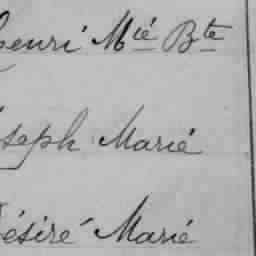 henri Mié Bte
oseph Marié
Désiré Marié